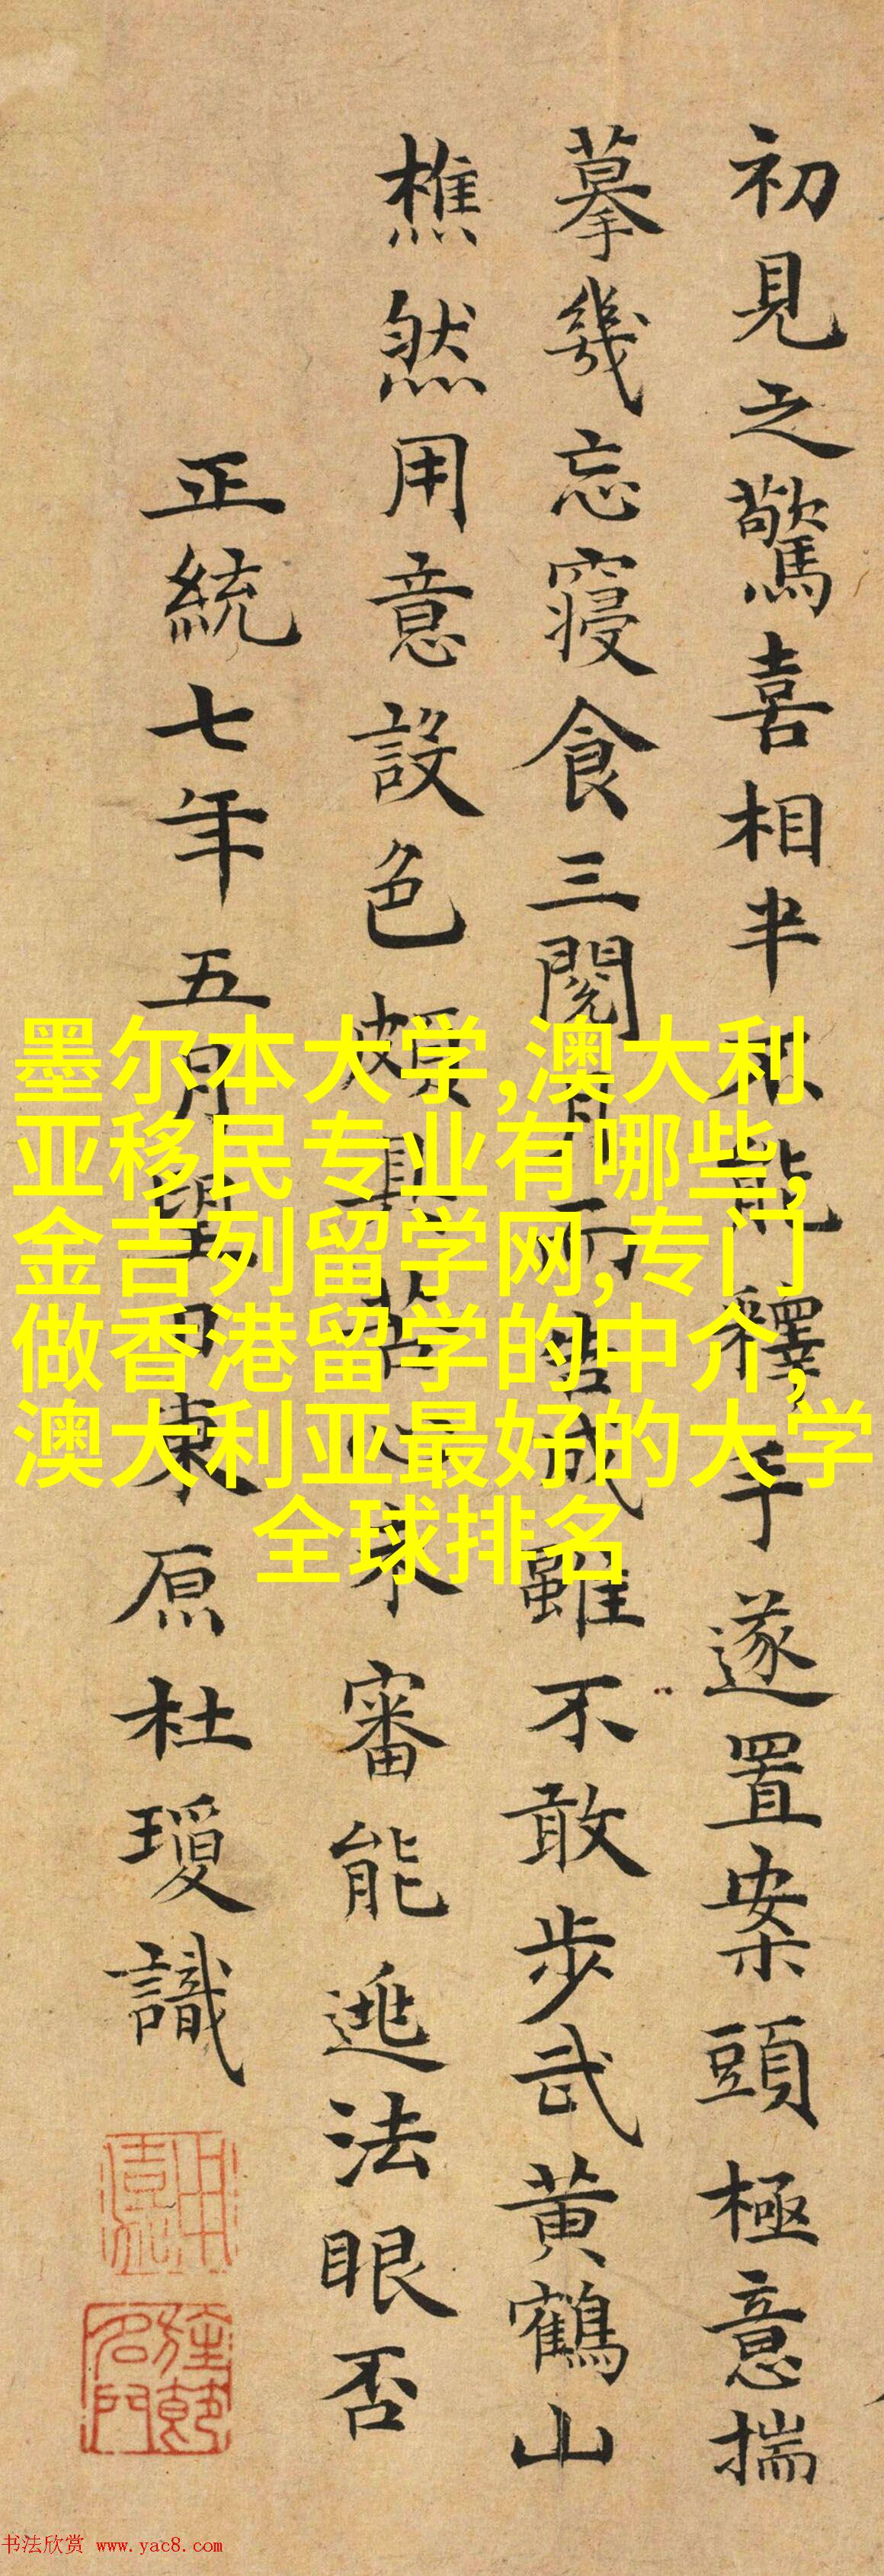 初見之驚喜相半不能釋手遂置案頭極意揣
摹幾忘寢食三閱月而告成雖不敢步武黃鶴山
樵然用意設色頗具苦心未審能逃法眼否
正統七年五月望日東原杜瓊識
墨尔本大学,澳大利
亚移民专业有哪些,
金吉列留学网,专门
做香港留学的中介,
澳大利亚最好的大学
全球排名
书法欣赏 www.yac8.com